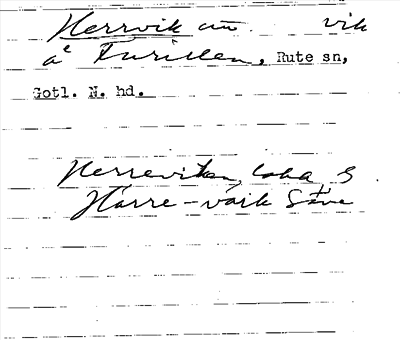 Herrvik vik
å Furillen, Rute sn,
Gotl. N. hd.
Herreviken, S
Harre-vaik Säve